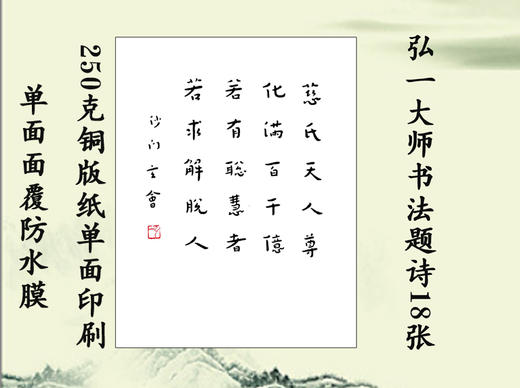 弘一大师书法题诗18张
慈氏天人尊
化满百千億
若有聪慧者
若求解脫人
沙门言會
250克铜版纸单面印刷
单面面覆防水膜